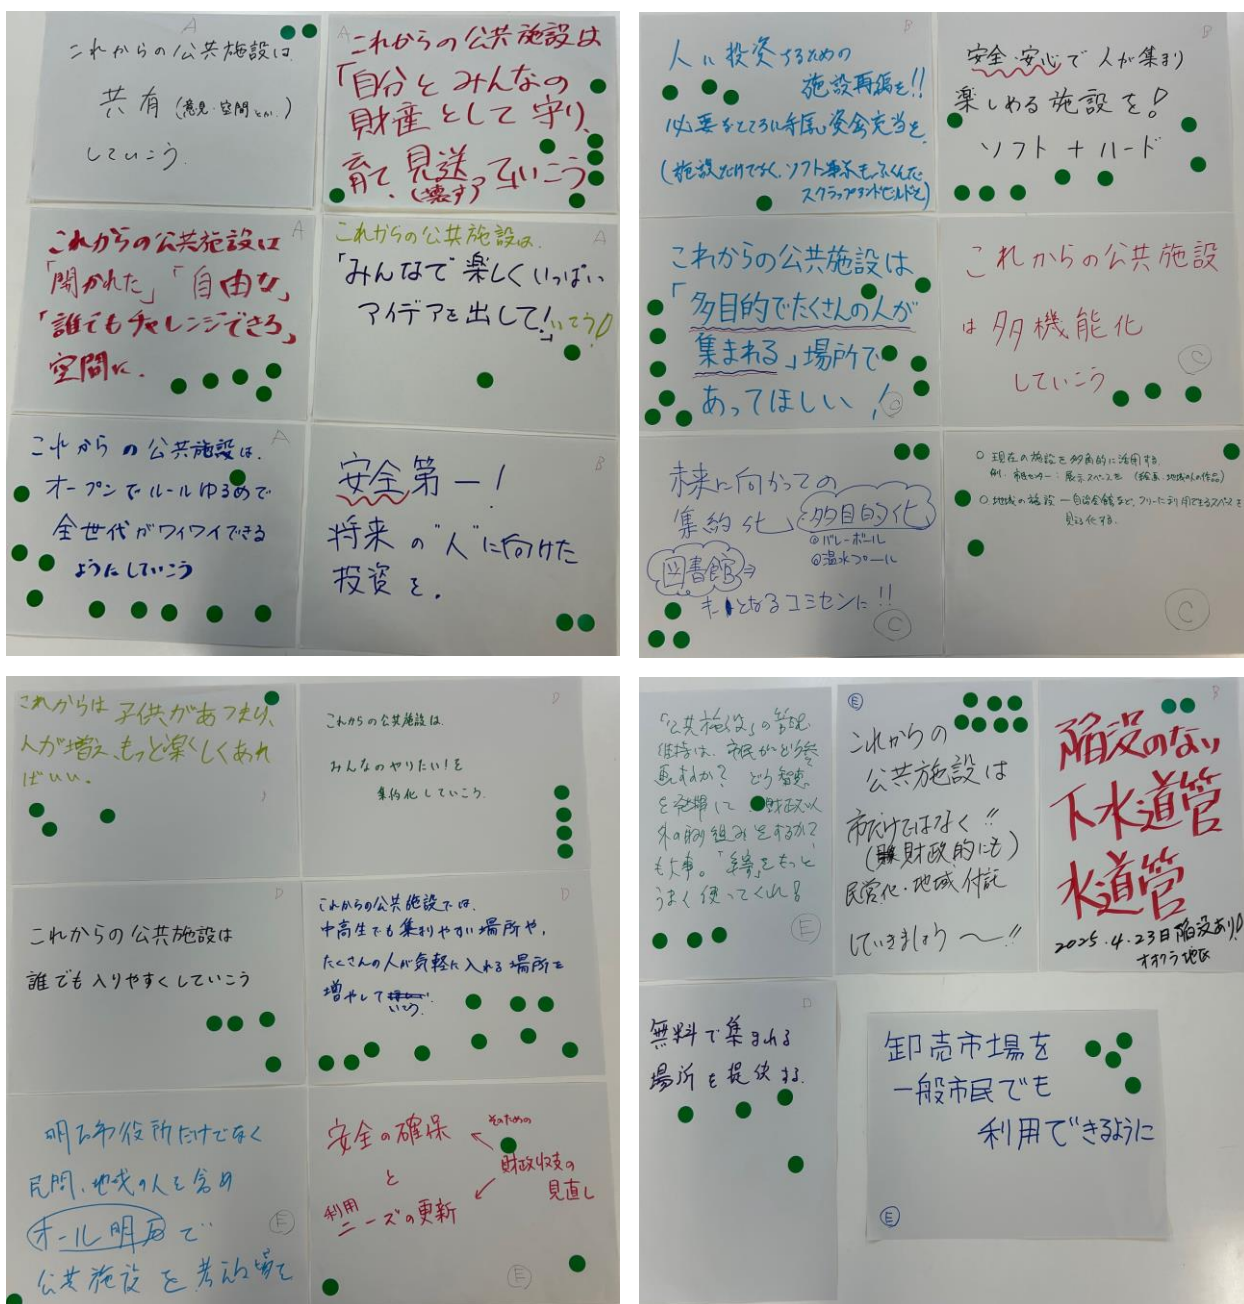 A
これからの公共施設は
共有(意見・空間とか)
していこう
A
これからの公共施設は
「自分とみんなの
財産として守り、
育て、見送っていこう
(壊す)
A
これからの公共施設は
「開かれた」「自由な」
「誰でもチャレンジできる」
空間に.
A
これからの公共施設は、
「みんなで楽しくいっぱい
アイデアを出して!」いこう!
A
これからの公共施設は、
オープンでルールゆるめで
全世代がワイワイできる
ようにしていこう
B
安全第一!
将来の"人"に向けた
投資を.
B
人に投資するための
施設再編を!!
必要なところに
資金充当を
(施設だけでなく、ソフト事業もふくんだ
スクラップアンドビルドを)
B
安全・安心で人が集まり
楽しめる施設を!
ソフト+ハード
これからの公共施設は
「多目的でたくさんの人が
集まれる」場所で
あってほしい!
C
これからの公共施設
は多機能化
していこう
C
未来に向かっての
集約化、多目的化
◎バレーボール
◎温水プール
図書館⇒
となるコミセンに!!
C
○現在の施設を多角的に活用する.
例.市民センター:展示スペースを(絵画、地域の人の作品)
○.地域の施設―自治会館など、フリーに利用できるスペースを
見える化する.
C
これからは子供があつまり、
人が増え、もっと楽しくあれ
ばいい.
D
これからの公共施設は、
みんなのやりたい!を
集約化していこう.
D
これからの公共施設は
誰でも入りやすくしていこう
D
これからの公共施設では、
中高生でも集まりやすい場所や、
たくさんの人が気軽に入れる場所を
増やして
いこう.
明石市役所だけでなく
民間、地域の人を含め
オール明石で
公共施設を考える場を
E
安全の確保
と
利用
ニーズの更新
そのための
財政収支の
見直し
E
「公共施設」の管理
維持は、市民がどう参
画するか?どう知恵
を発揮して財政以
外の取り組みをするか?
も大事。「 」をもっと
うまく使ってくれ!
E
E
これからの
公共施設は
市だけではなく!!
(財政的にも)
民営化・地域付託
していきましょう〜!!
B
陥没のない
下水道管
水道管
2025.4.23日陥没あり!
オオクラ地区
D
無料で集まれる
場所を提供する.
卸売市場を
一般市民でも
利用できるように
E